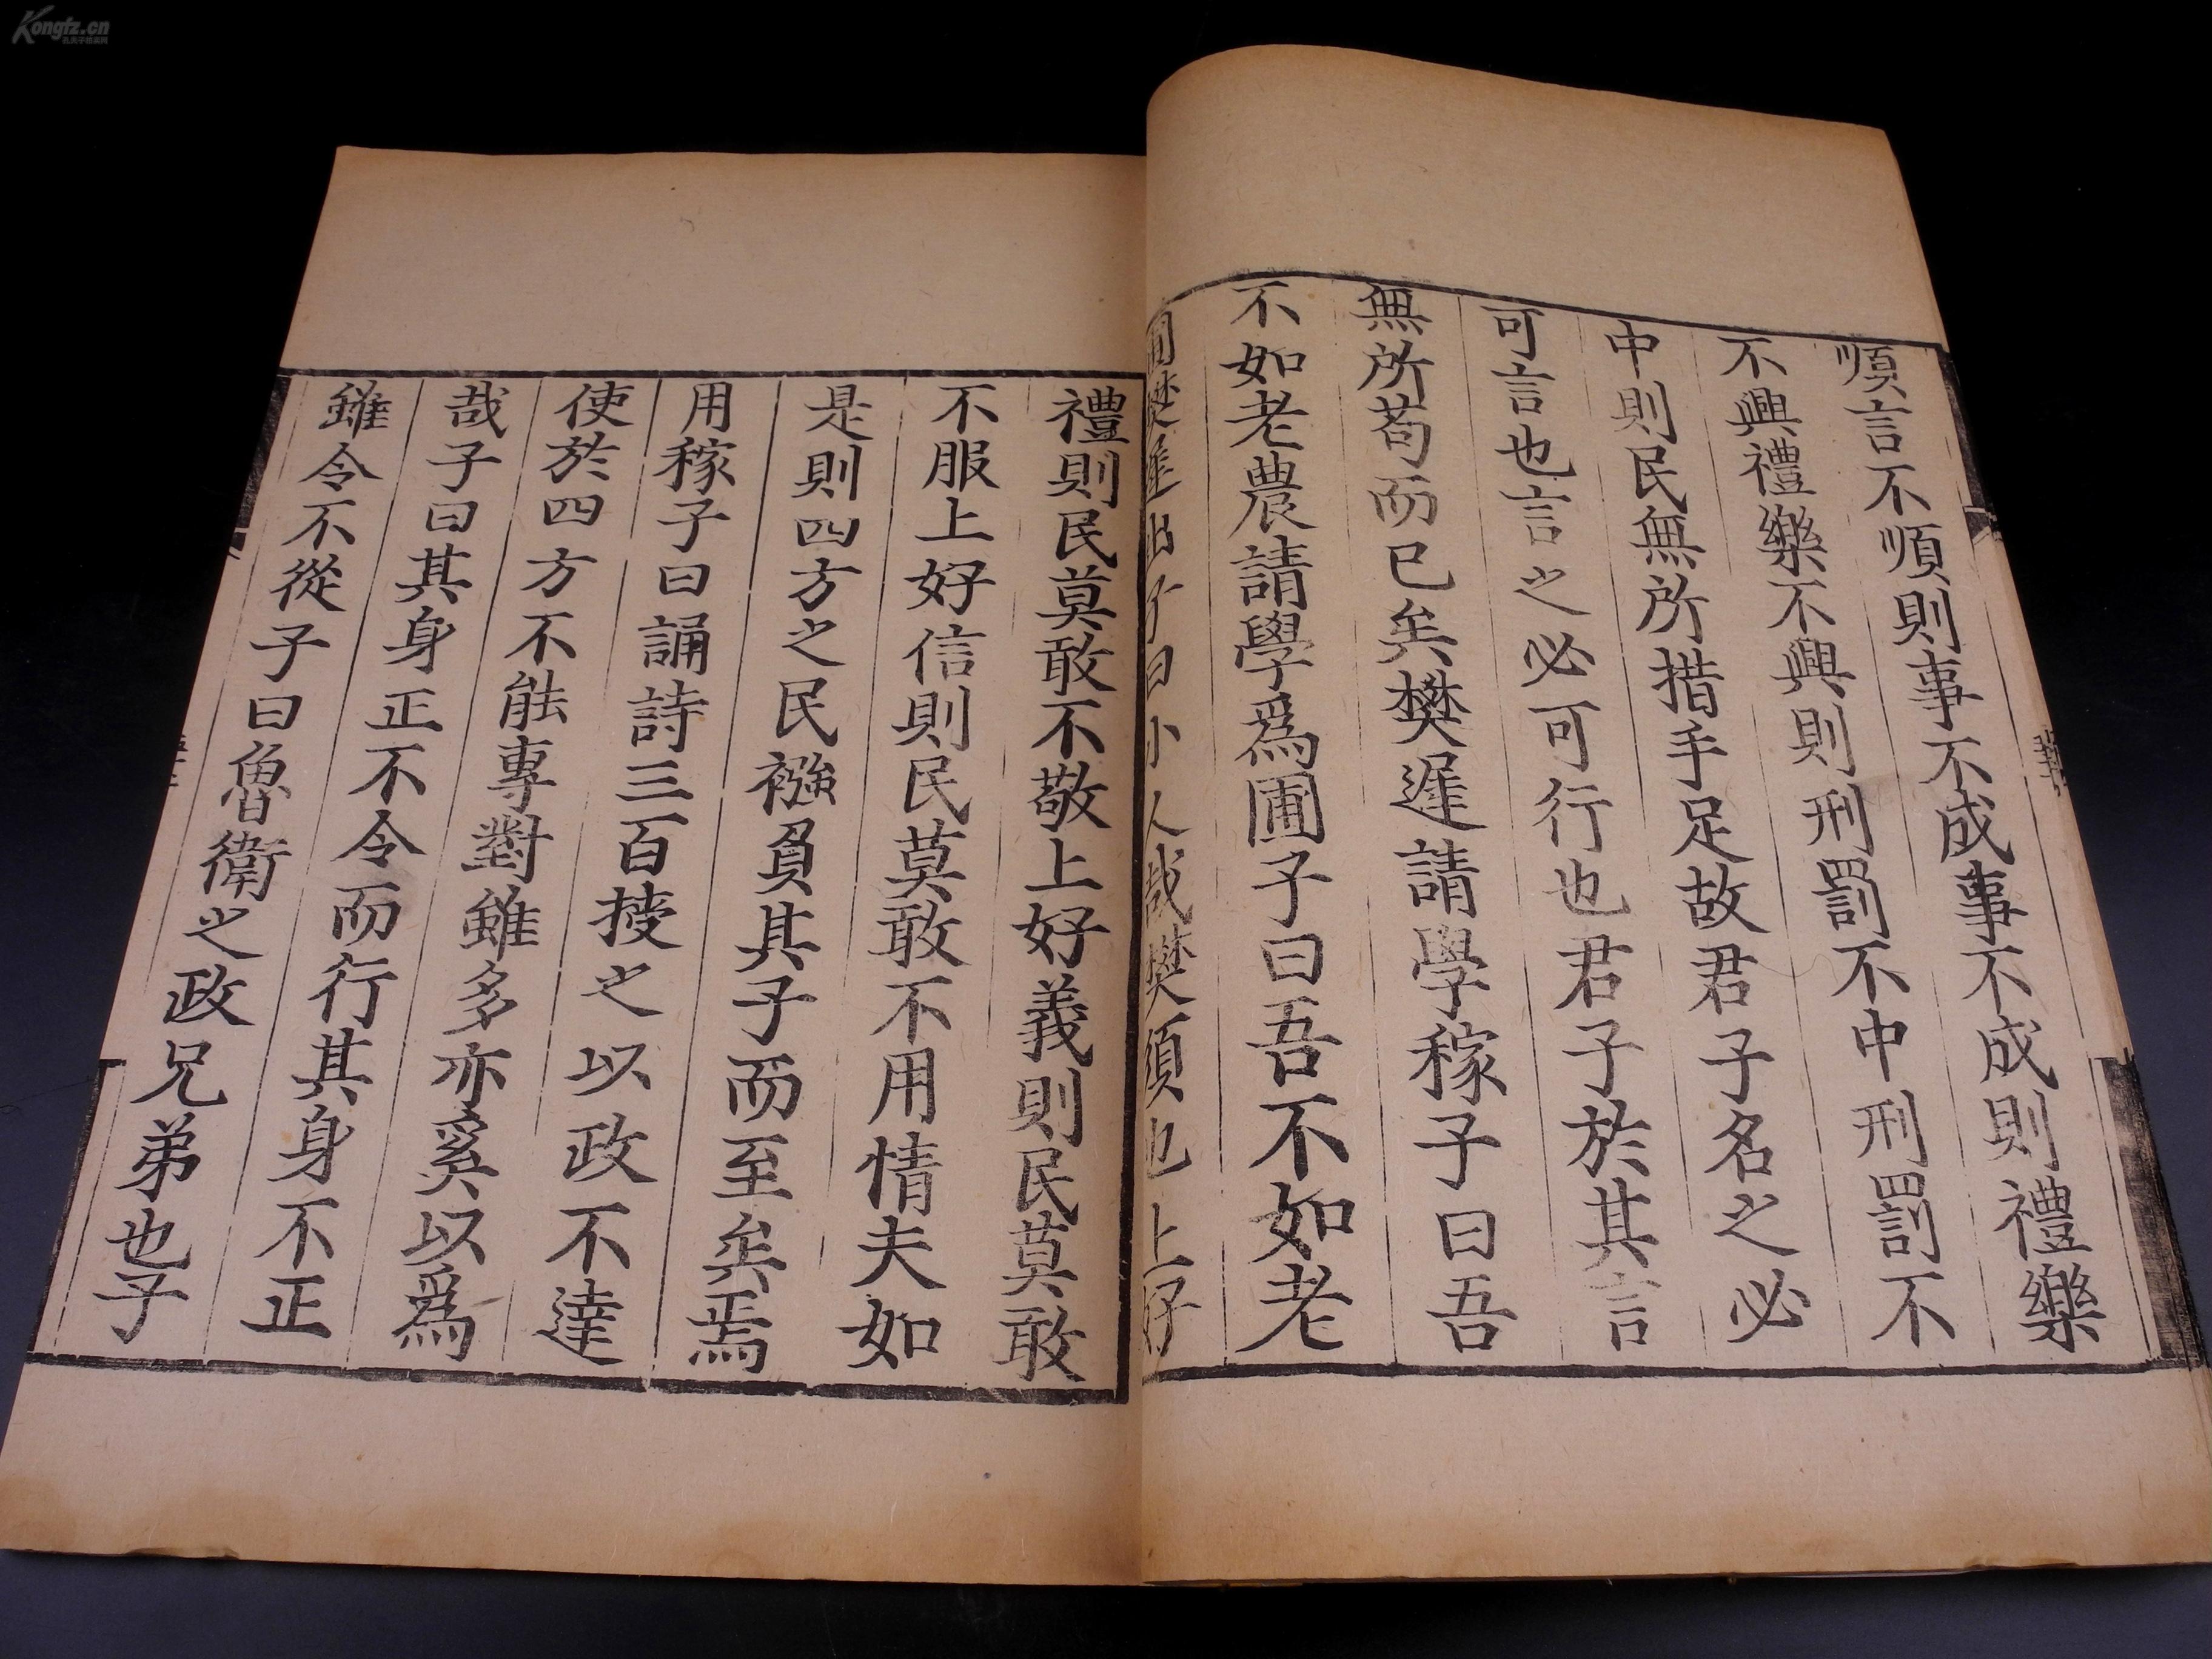 順言不順則事不成事不成則禮樂
不興禮樂不興則刑罰不中刑罰不
中則民無所措手足故君子名之必
可言也言之必可行也君子於其言
無所苟而已矣樊遲請學稼子曰吾
不如老農請學爲圃子曰吾不如老
圃樊遲出子曰小人哉樊須也上好
禮則民莫敢不敬上好義則民莫敢
不服上好信則民莫敢不用情夫如
是則四方之民襁負其子而至矣焉
用稼子曰誦詩三百授之以政不達
使於四方不能專對雖多亦奚以爲
哉子曰其身正不令而行其身不正
雖令不從子曰魯衛之政兄弟也子
Kongfz.cn